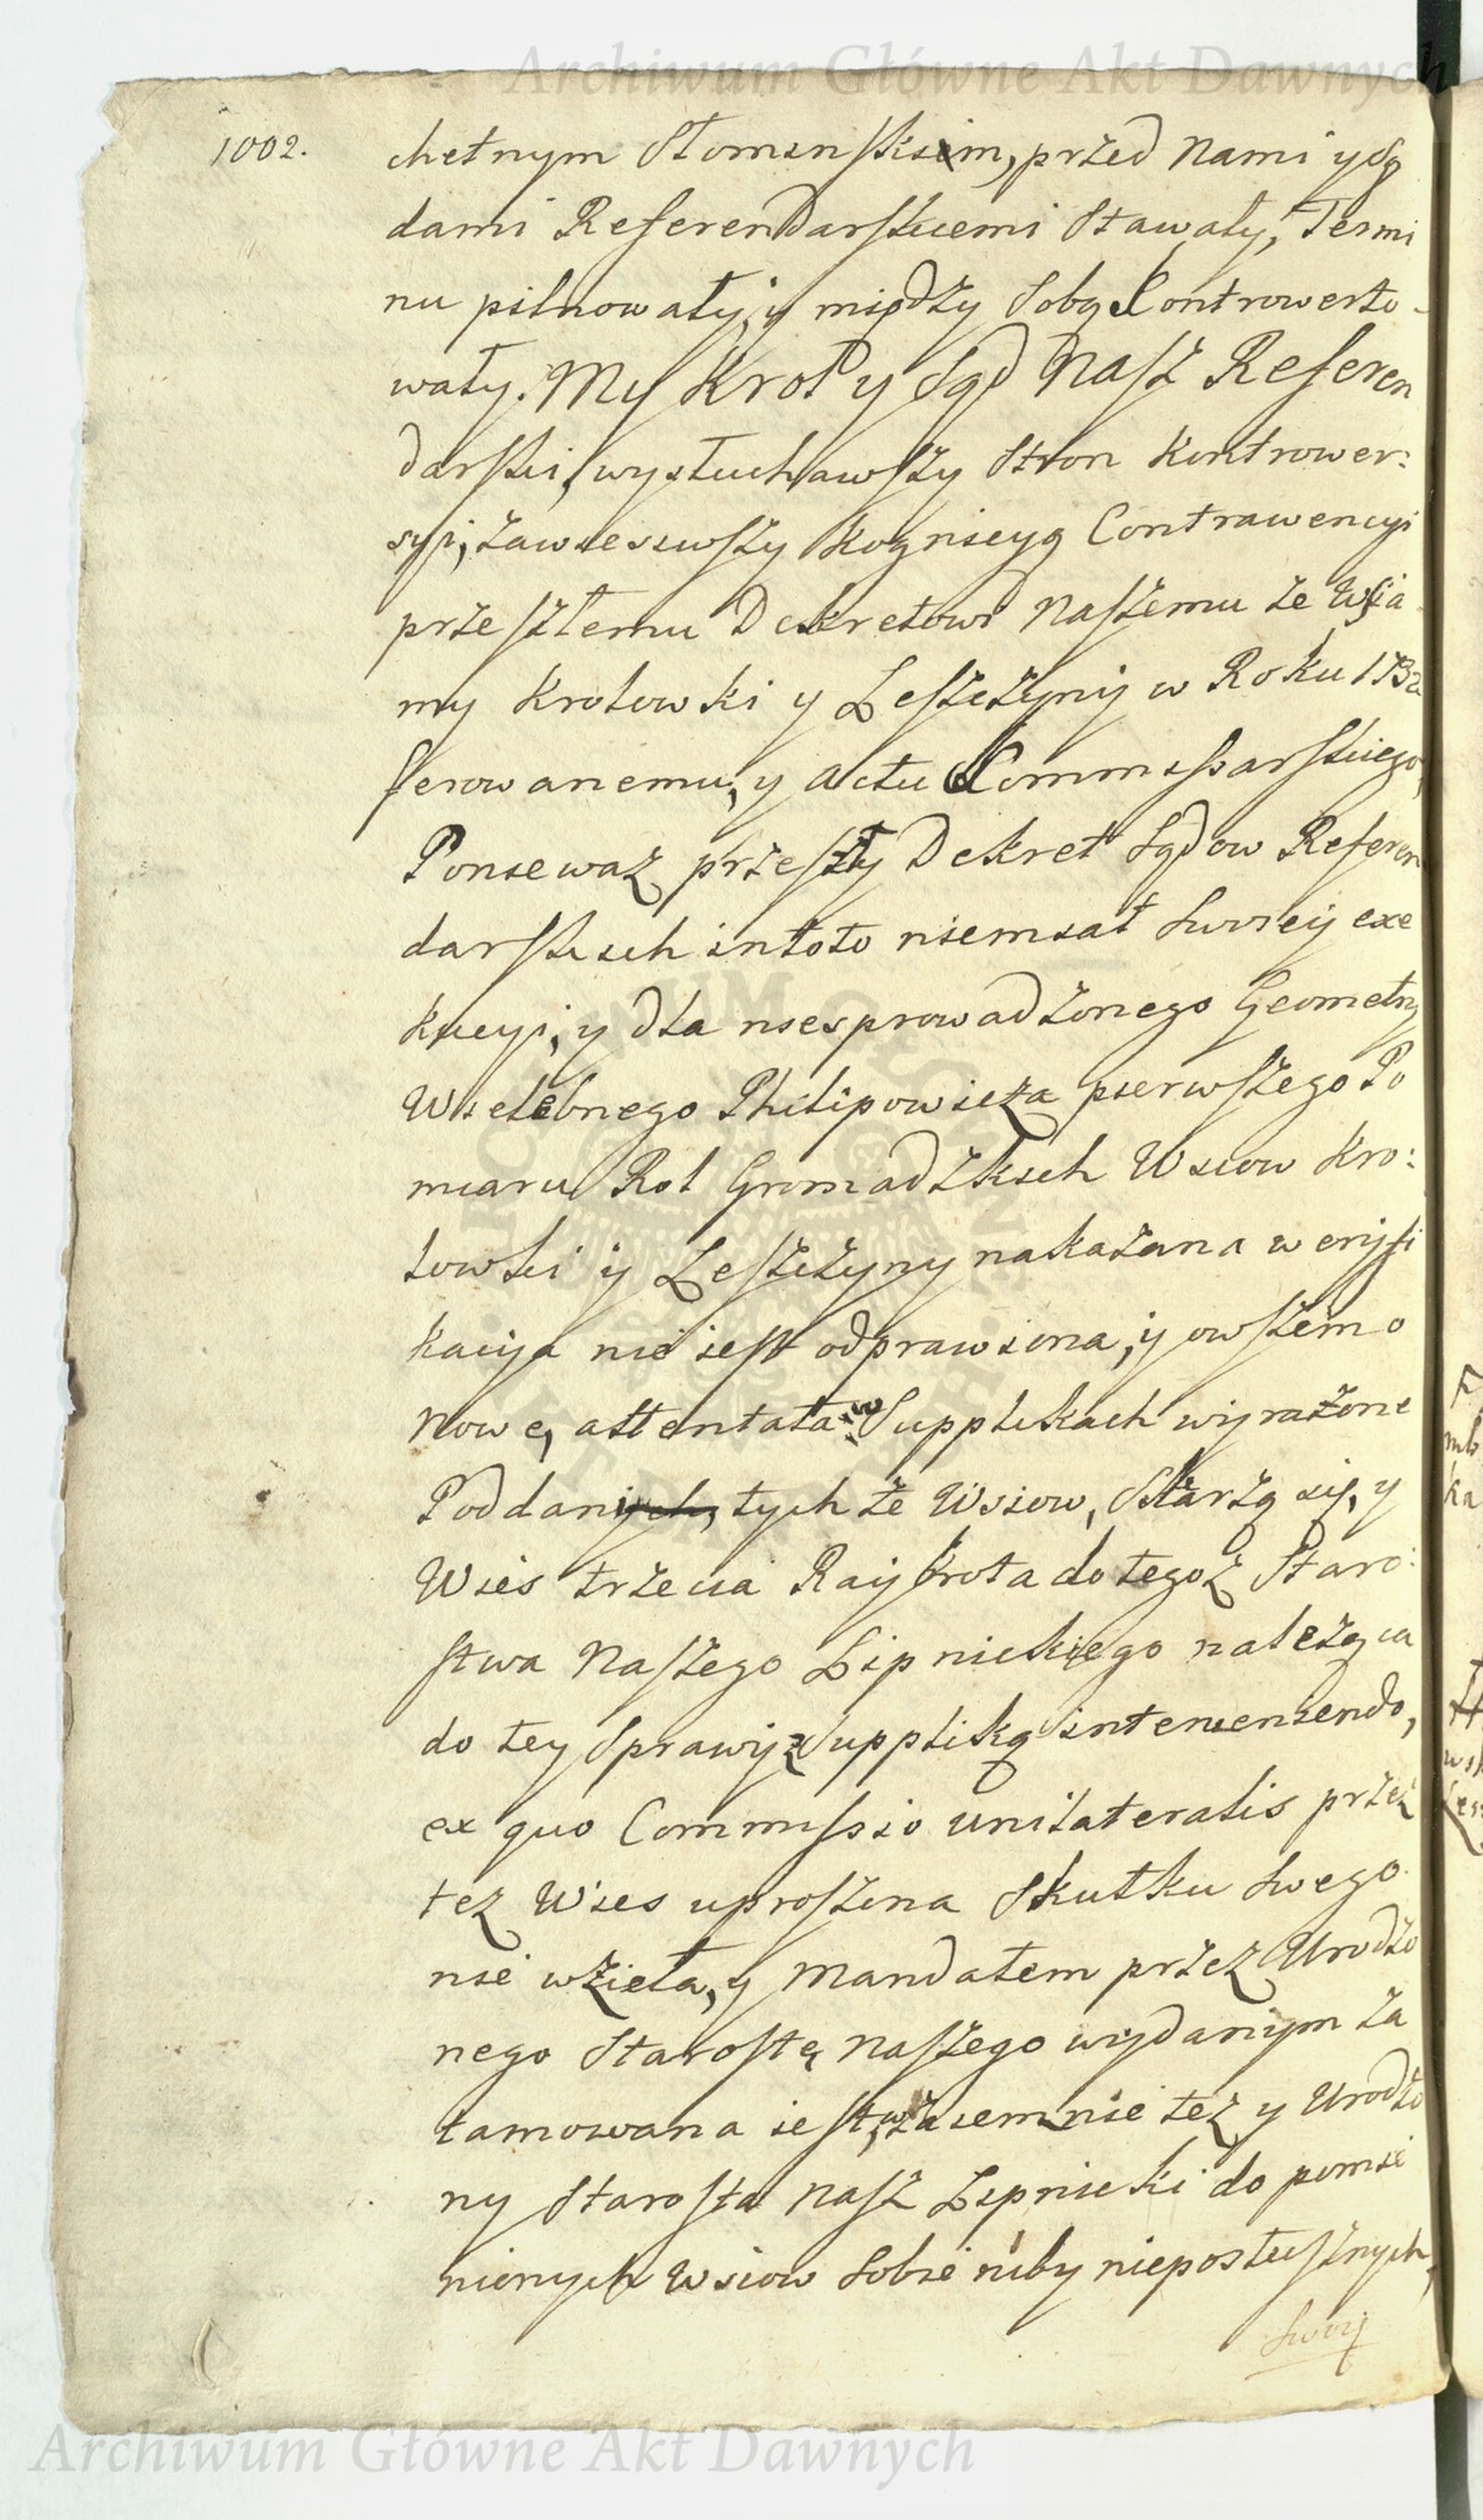 Archiwum Główne Akt Dawnych
1002.
chetnym Słominskim, przed Nami y Są
dami Referendarskiemi Stawały, Termi
nu pilnowały, y między Sobą Controwerto-
wały. My Krol y Sąd Nasz Referen
darski, wysłuchawszy Stron Kontrower:
syi, zawiesiwszy Kognicyą Contrawencyi
przeszłemu Dekretowi Naszemu ze Wsia
my Krolowki y Leszczyny w Roku 1732
ferowanemu, y Actu Commissarskiego,
Poniewaz przeszły Dekret Sądow Referen
darskich in toto niemiał Swoiey exe
kucyi, y dla niesprowadzonego Geometry
Wielebnego Philipowicza pierwszego Po
miaru Rol Gromadzkich Wsiow Kro:
lowki y Leszczyny nakazana weryfi
kacya nie iest odprawiona, y owszem o
Nowe, attentata w Supplikach wyrazone
Poddani tychze Wsiow, Skarzą się, y
Wies trzecia Raybrota do tegoz Staro:
stwa Naszego Lipnickiego naleząca
do tey Sprawy z Suppliką interveniendo,
ex quo Commissio unilateralis przez
tez Wies uproszona Skutku Swego
nie wzieła, y Mandatem przez Urodzo
nego Starostę Naszego wydanym za
tamowana iest, wzaiemnie tez y Urodzo
ny Starosta Nasz Lipnicki do pomie
nionych Wsiow Sobie niby nieposłusznych,
Swoiy
Archiwum Główne Akt Dawnych